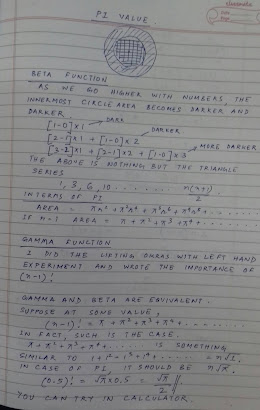 classmate
Date
Page
PI VALUE.
BETA FUNCTION
AS WE GO HIGHER WITH NUMBERS, THE
INNERMOST CIRCLE AREA BECOMES DARKER AND
DARKER.
[1-0]×1 → DARK
[2-1]×1 + [1-0]×2 → DARKER
[3-2]×1 + [2-1]×2 + [1-0]×3 → MORE DARKER
THE ABOVE IS NOTHING BUT THE TRIANGLE
SERIES
1, 3, 6, 10 ....... n(n+1)/2
IN TERMS OF PI
AREA =
IF n=1 AREA = π + π² + π³ + π⁴ + ......
GAMMA FUNCTION
I DID THE LIFTING DHARAS WITH LEFT HAND
EXPERIMENT AND WROTE THE IMPORTANCE OF
(n-1)!
GAMMA AND BETA ARE EQUIVALENT.
SUPPOSE AT SOME VALUE,
(n-1)! = π + π² + π³ + π⁴ + ......
IN FACT, SUCH IS THE CASE.
π + π² + π³ + π⁴ + ...... IS SOMETHING
SIMILAR TO 1 + 1² + 1³ + 1⁴ + ...... = n√1.
IN CASE OF PI, IT SHOULD BE n√π.
(0.5)! = √π × 0.5 = √π/2
YOU CAN TRY IN CALCULATOR.